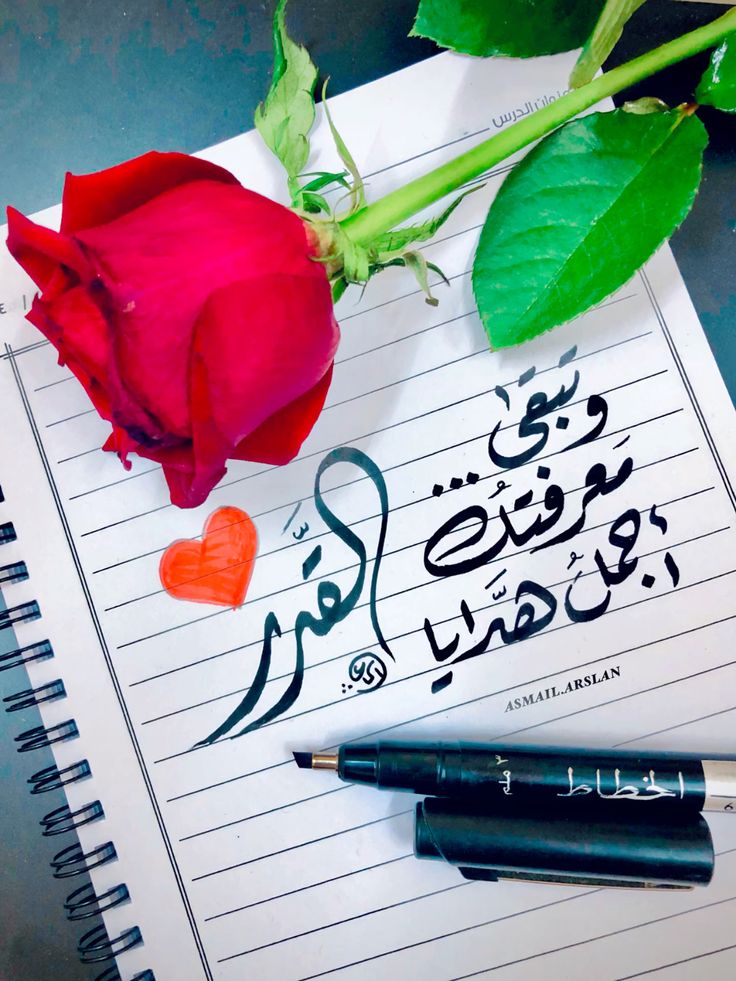 عنوان الدرس
وتبقى
معرفتكُ...
أجملُ هدَايا
القدَّر
ASMAIL.ARSLAN
الخطاط